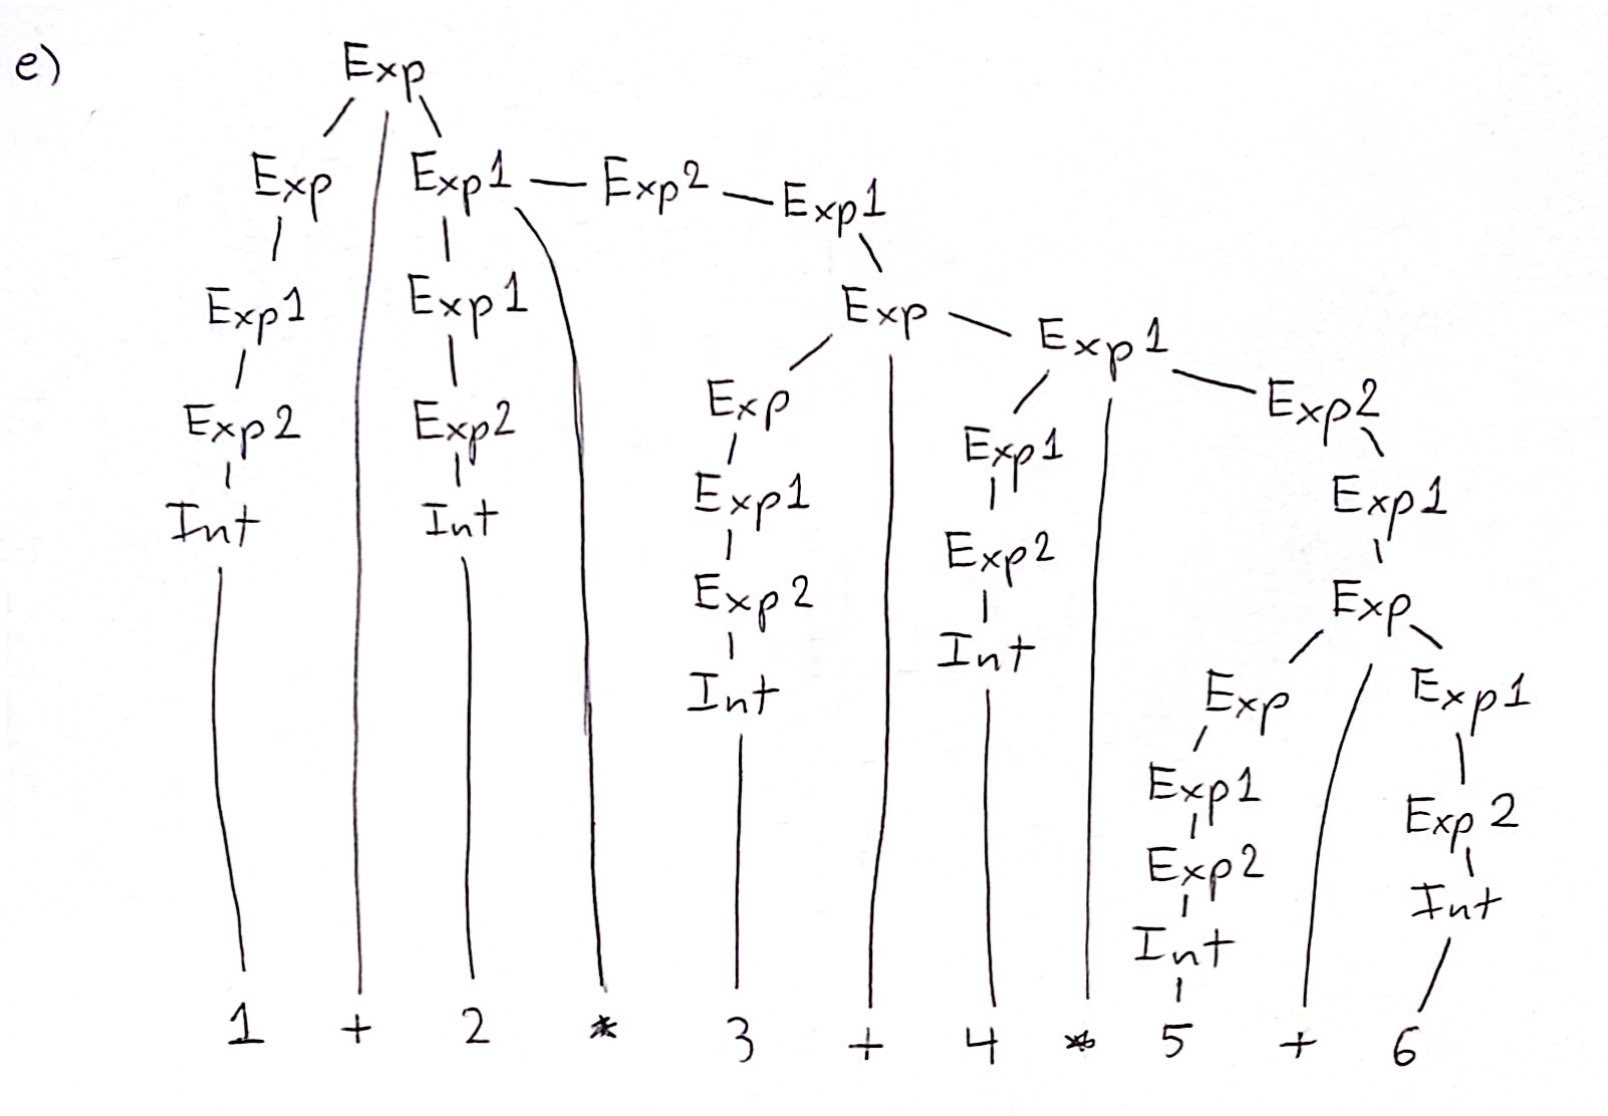 e) Exp
Exp Exp1 Exp2 Exp1
Exp1 Exp1 Exp Exp1
Exp2 Exp2 Exp Exp1 Exp2
Int Int Exp1 Exp2 Exp1
Exp2 Int Exp
Int Exp Exp1
Exp1 Exp2
Exp2 Int
Int
1 + 2 * 3 + 4 * 5 + 6